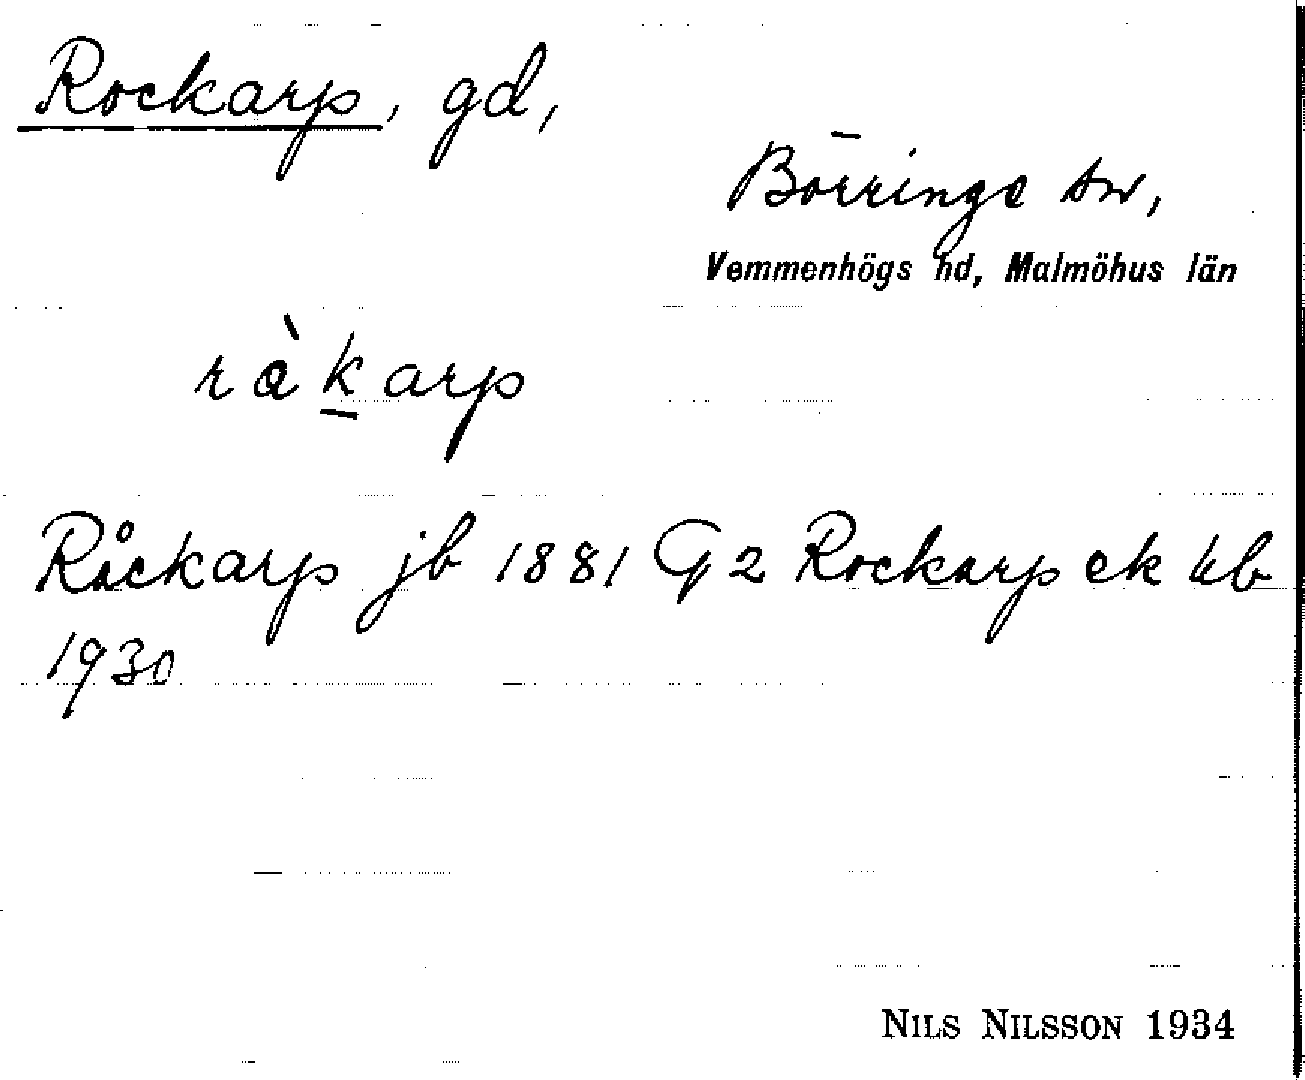 Rockarp, gd,
Börringe sn,
Vemmenhögs hd, Malmöhus län
ràk̲arp
Råckarp jb 1881 G2 Rockarp ek kb
1930
NILS NILSSON 1934